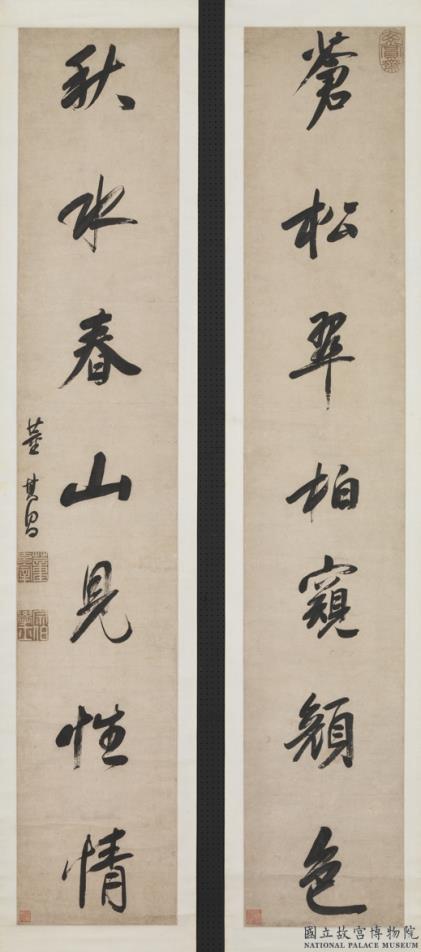 蒼松翠柏窺顏色
秋水春山見性情
董其昌
國立故宮博物院
NATIONAL PALACE MUSEUM